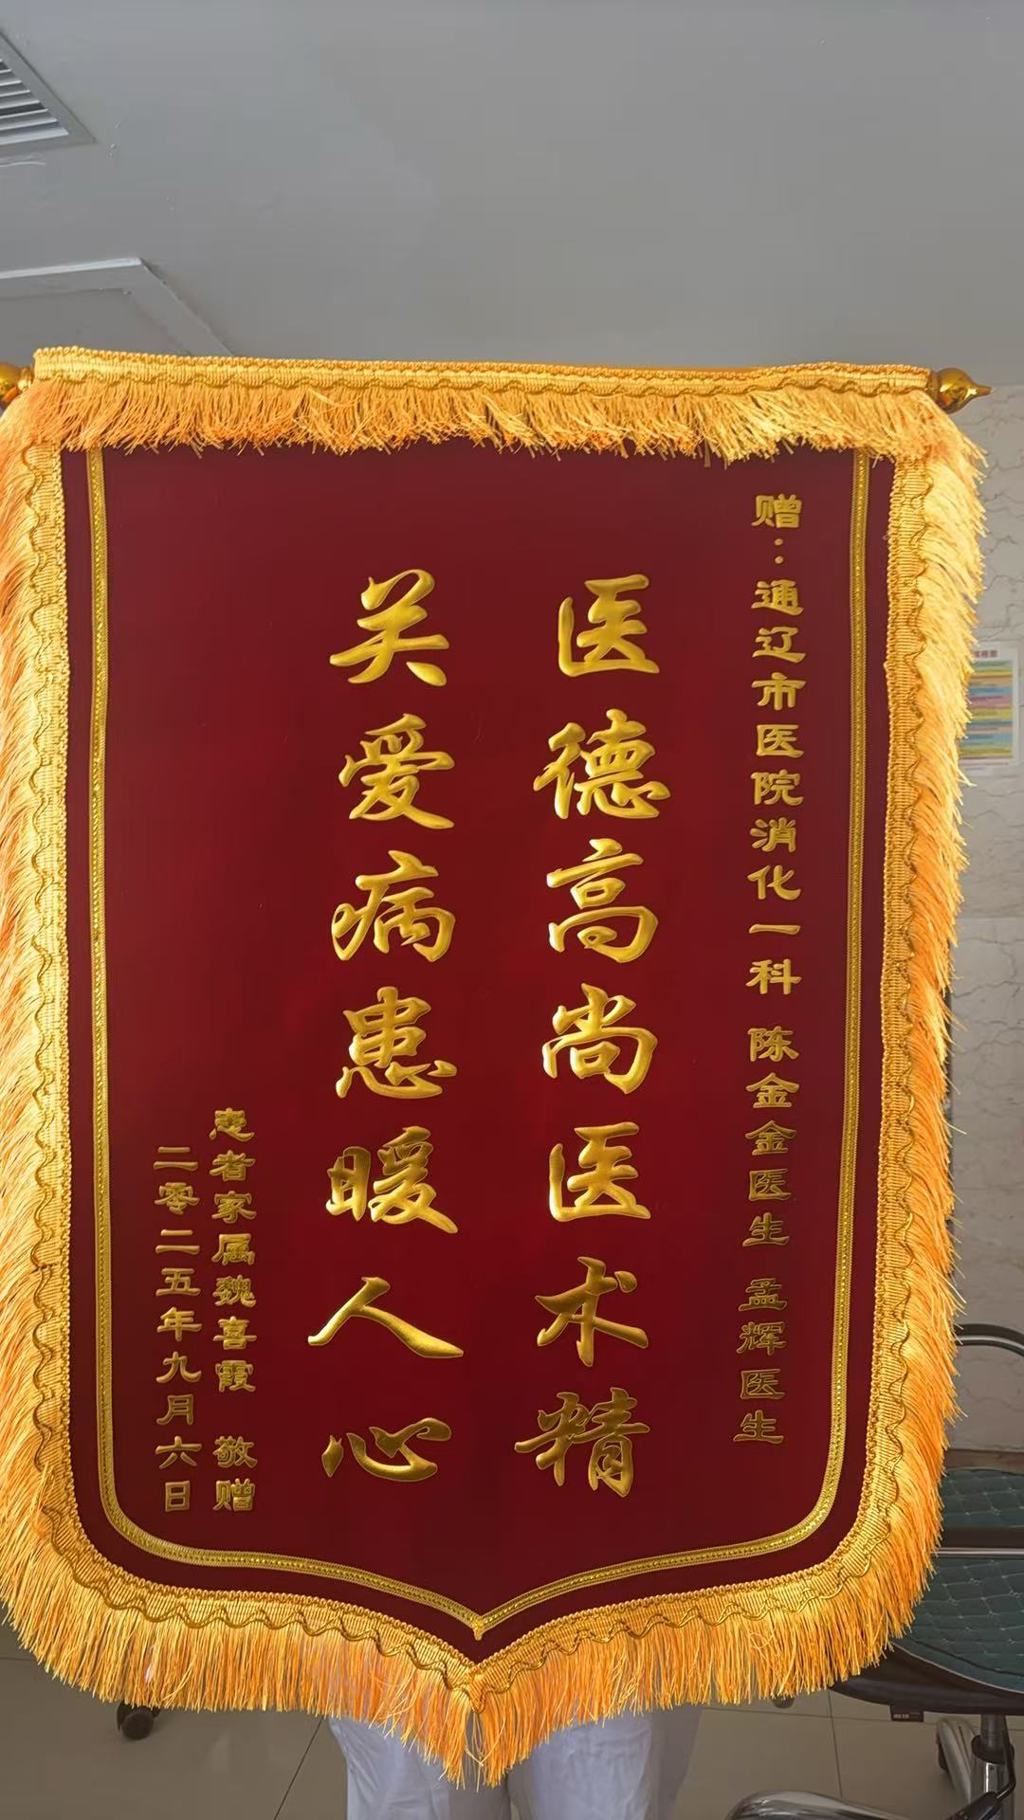 赠:通辽市医院消化一科 陈金金医生 孟辉医生
医德高尚医术精
关爱病患暖人心
患者家属魏喜霞 敬赠
二零二五年九月六日